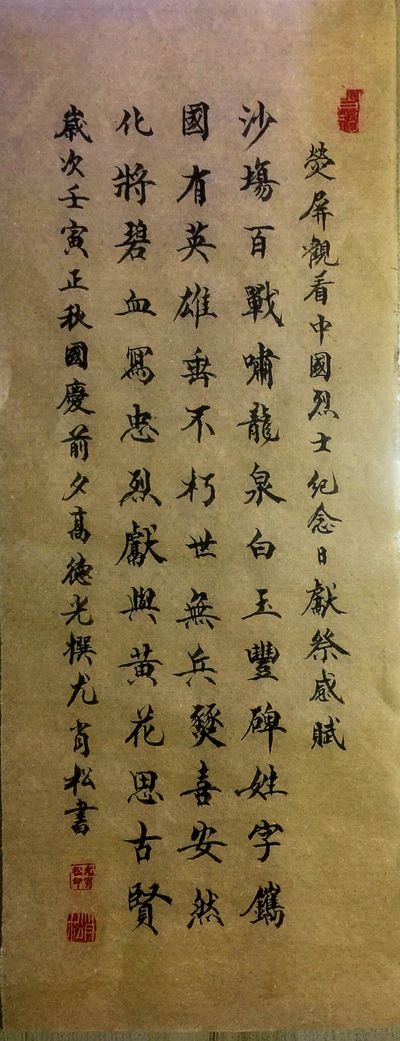 熒屏觀看中國烈士紀念日獻祭感賦
沙場百戰嘯龍泉白玉豐碑姓字鐫
國有英雄垂不朽世無兵燹喜安然
化將碧血寫忠烈獻與黃花思古賢
歲次壬寅正秋國慶前夕高德光撰尤肖松書
尤肖松印